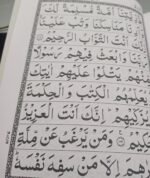 أُمَّةً مُّسْلِمَةً لَّكَ
وَأَرِنَا مَنَاسِكَنَا وَتُبْ عَلَيْنَا
إِنَّكَ أَنتَ التَّوَّابُ الرَّحِيمُ
رَبَّنَا وَابْعَثْ فِيهِمْ رَسُولًا
مِّنْهُمْ يَتْلُوا عَلَيْهِمْ آيٰتِكَ
وَيُعَلِّمُهُمُ الْكِتٰبَ وَالْحِكْمَةَ
وَيُزَكِّيهِمْ إِنَّكَ أَنتَ الْعَزِيزُ
الْحَكِيمُ وَمَن يَرْغَبُ عَن مِّلَّةِ
إِبْرٰهِيمَ إِلَّا مَن سَفِهَ نَفْسَهُ